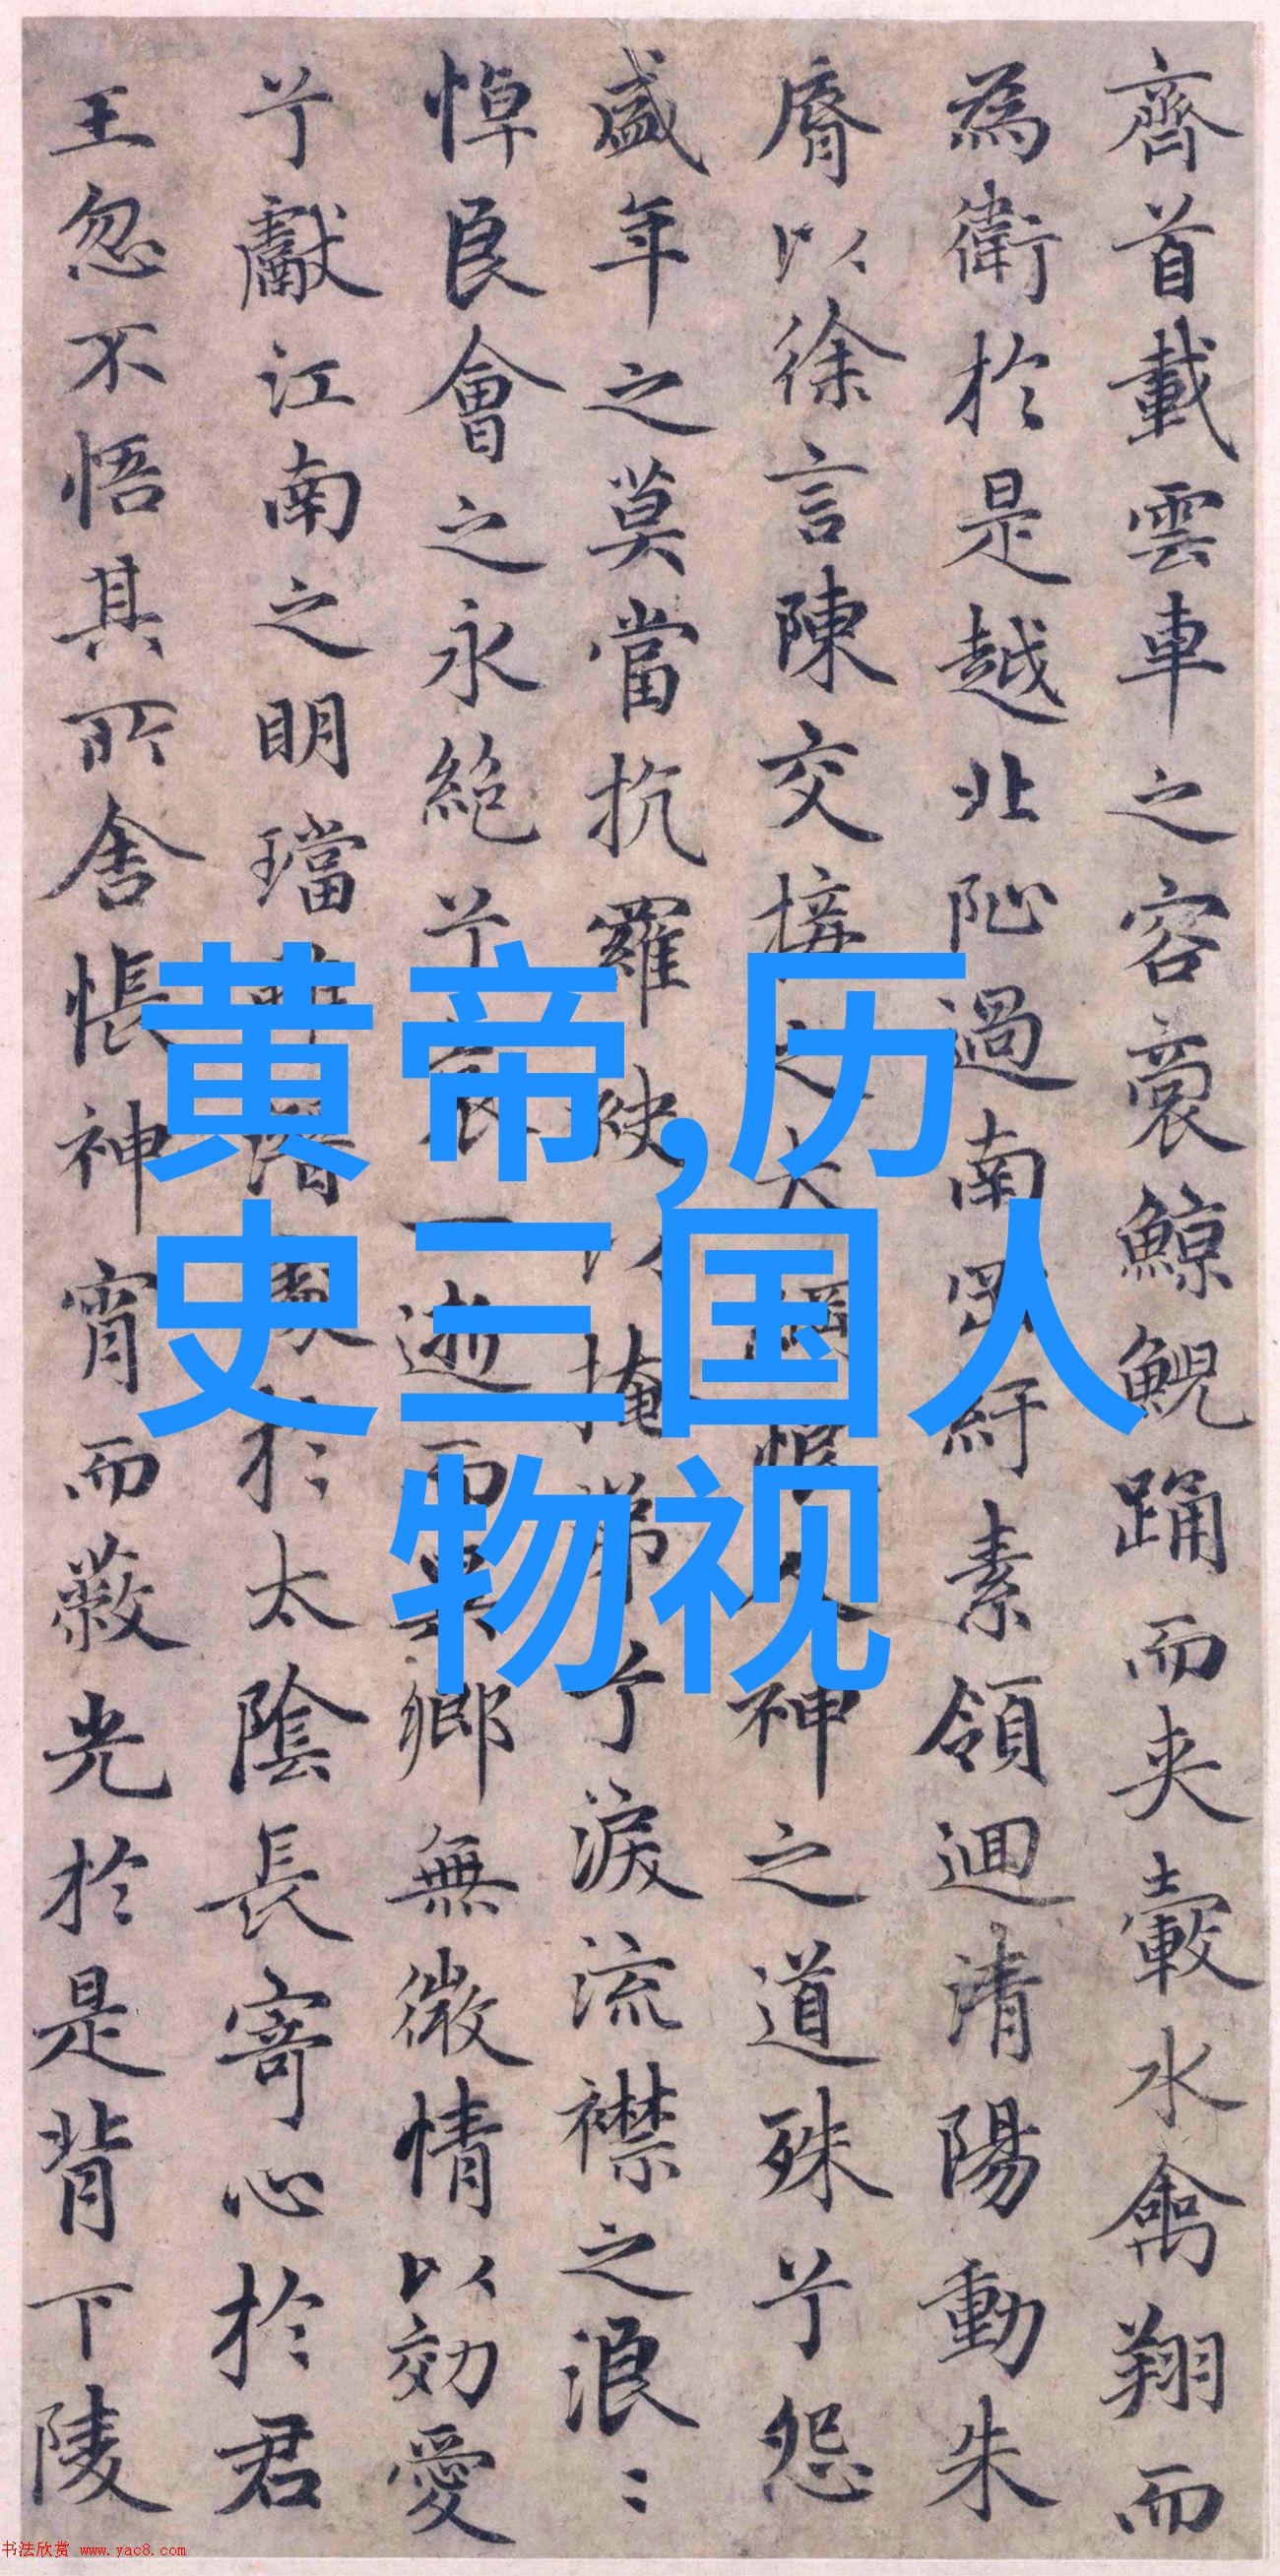 齊首載雲車之容裔鯨鯢踊而夾轂水禽翔而
為衛於是越北阯過南岡紆素領迴清陽動朱
脣以徐言陳交接之大綱恨人神之道殊兮怨
盛年之莫當抗羅袂以掩涕兮淚流襟之浪〻
悼良會之永絕兮哀一逝而異鄉無微情以効愛
兮獻江南之明璫雖潛處於太陰長寄心於君
王忽不悟其所舍悵神宵而蔽光於是背下陵
黄帝,历
史三国人
物视
书法欣赏 www.yac8.com